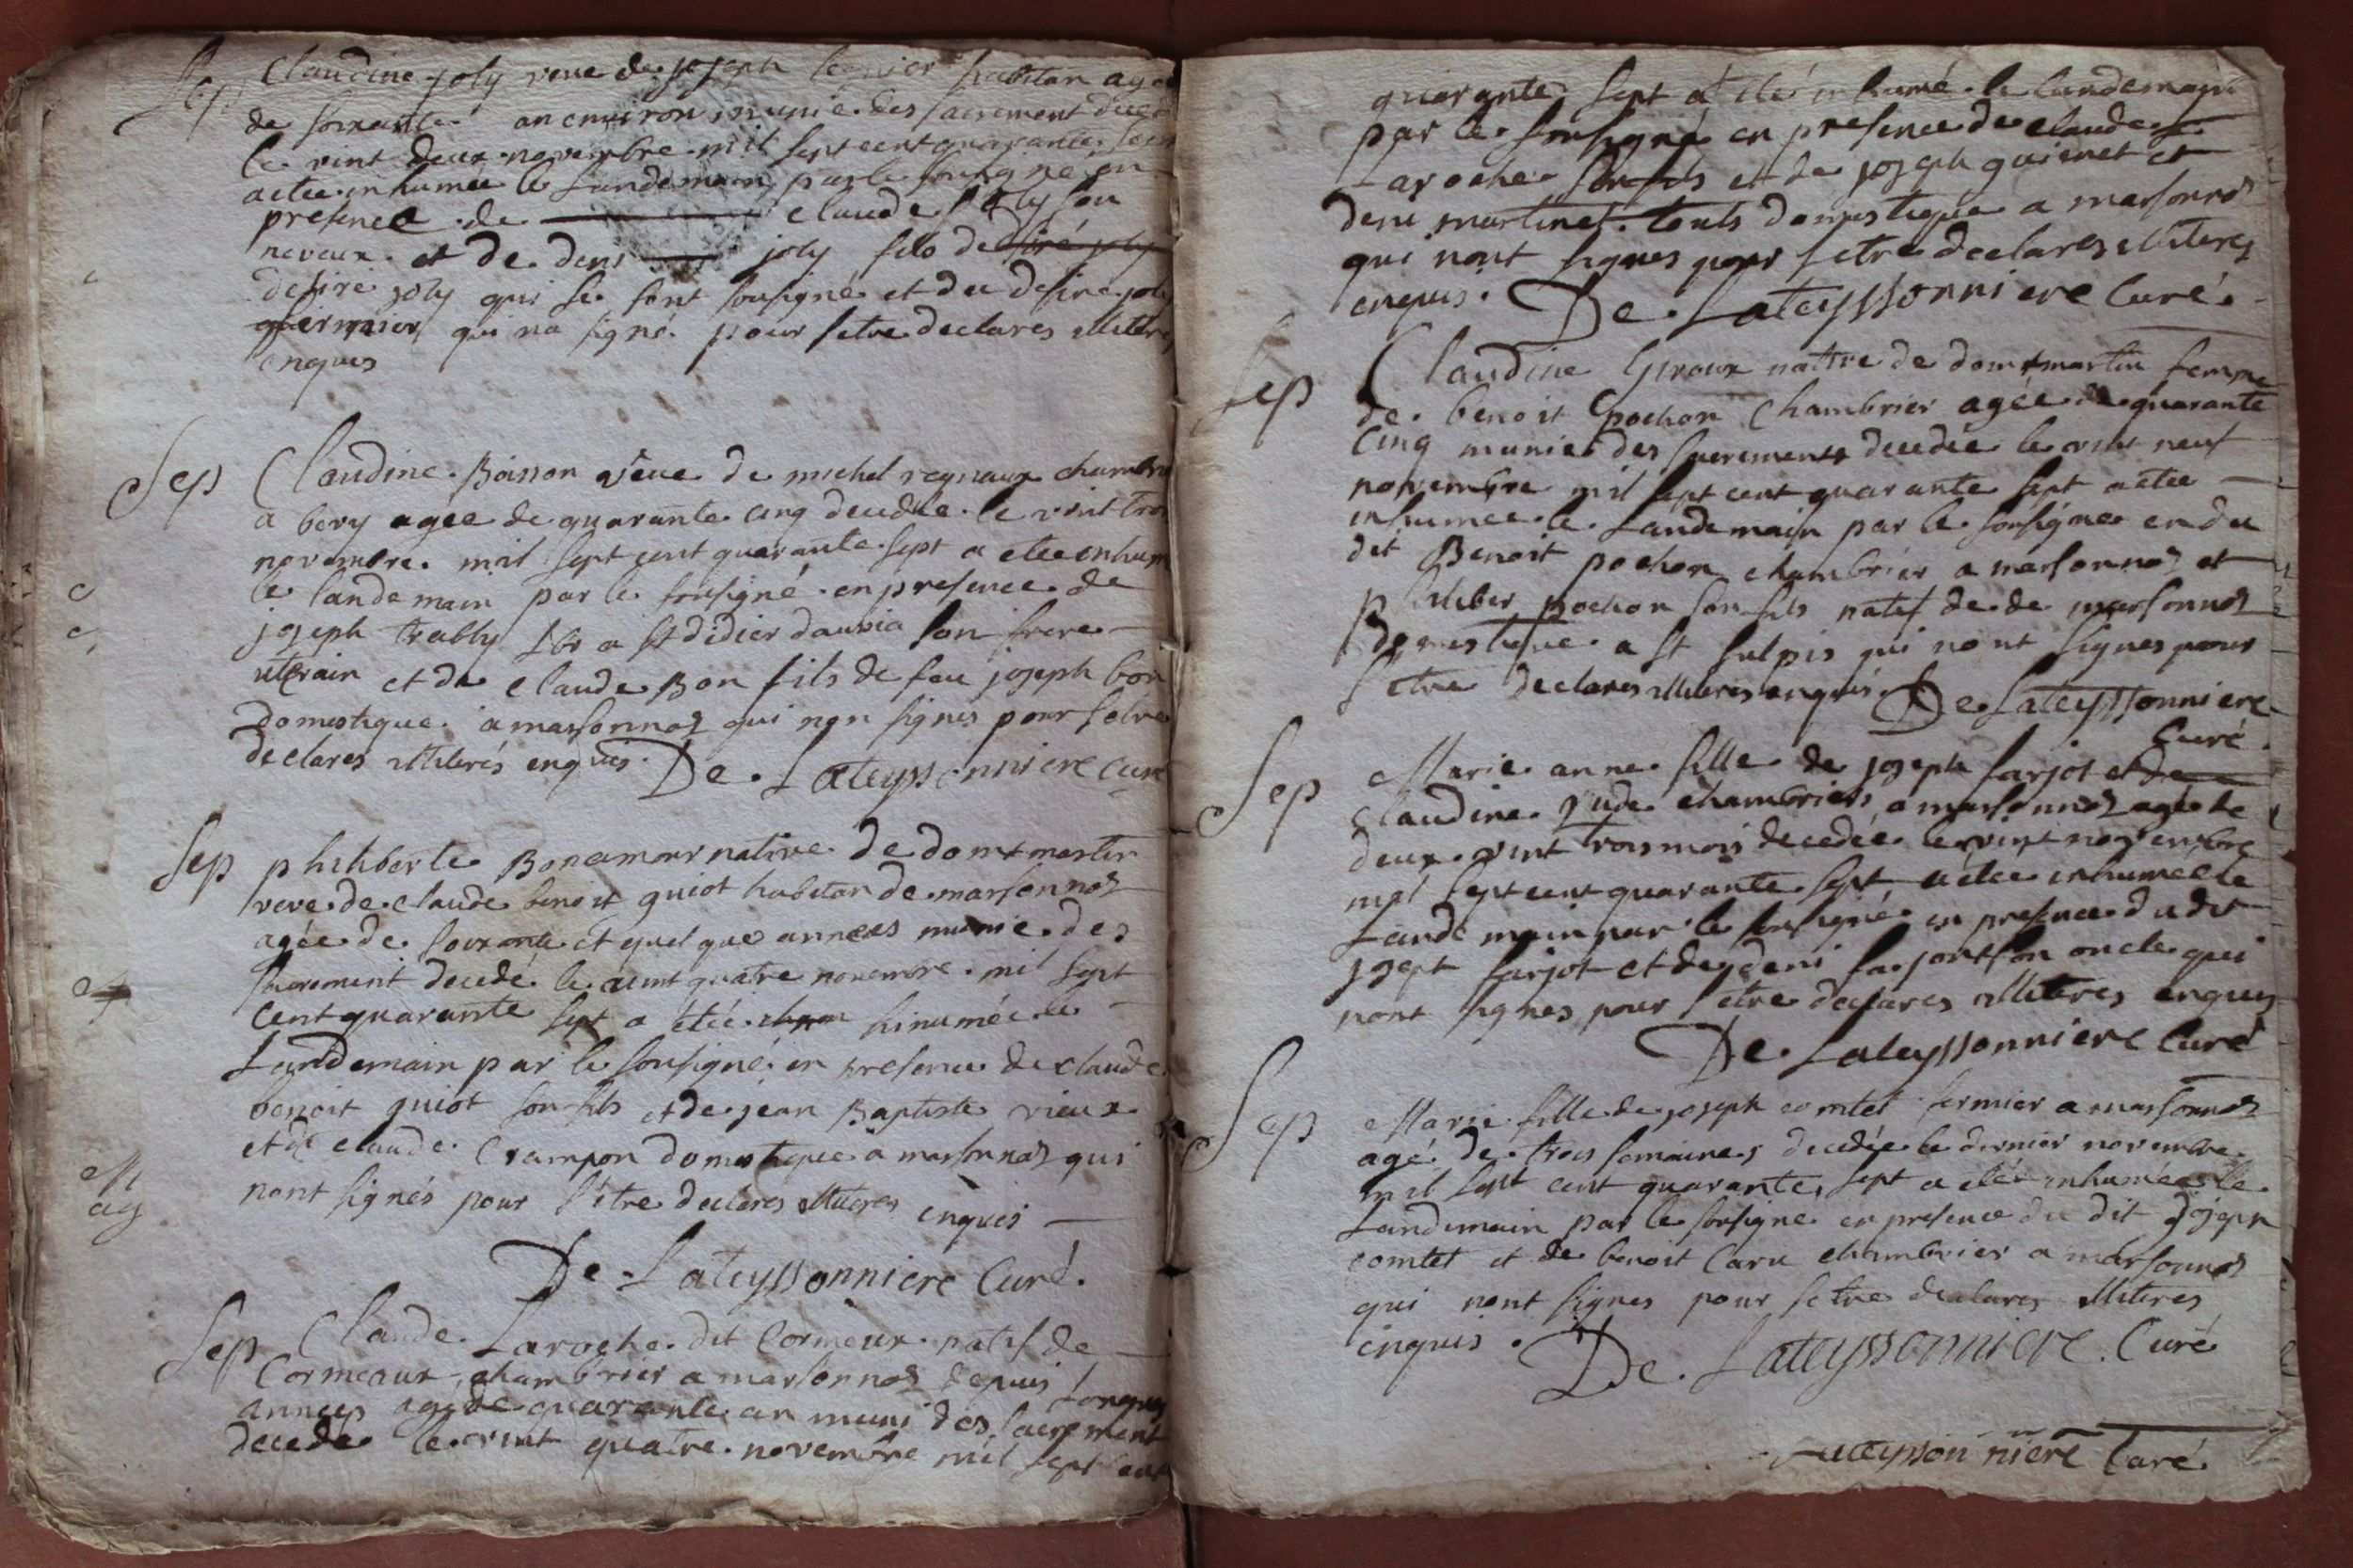 Sep Claudine joly veue de joseph habitan agee
de soixante an environ munie des sacrement decedee
le vint deux novembre mil sept cent quarante sept
a etee inhumee le landemain par le sousigné en
presence de claude joly son
neveux et de deni joly fils de desiré joly
desiré joly qui se sont sousigné et du desire joly
germnier qui na signé pour setre declares illiteres
enquis
Sep Claudine Boisson veue de michel regnaux chambrier
a bery agée de quarante cinq decedée le vint trois
novembre mil sept cent quarante sept a etee inhumé
le landemain par le sousigné en presence de
joseph trably a st didier daussia son frere
uterain et de claude Bon fils de feu joseph bon
domestique a marsonnas qui non signes pour setre
declares illiterés enquis De Lateyssonniere Curé
Sep philiberte Bonamour native de dommartin
veve de claude benoit guiot habitan de marsonnas
agée de soixante et quelque annees munie des
sacrement decedé le vint quatre novembre mil sept
cent quarante sept a étéé hinumée le
Landemain par le sousigné en presence de claude
benoit guiot son fils et de jean Baptiste vieux
et de claude Crampon domestique a marsonnas qui
nont signés pour s'etre declares illiteres enquis
De Lateyssonniere Curé.
Sep Claude Laroche dit Cormeux natif de
Cormeaux chambrier a marsonnas depuis longues
années agé de quarante an muni des sacrement
decede le vint quatre novembre mil sept cent
quarante sept a été inhumé le landemain
par le sousigné en presence de claude
Laroche son fils et de joseph guimet et
deni martinet touts domestique a marsonnas
qui nont signes pour setre declares illiteres
enquis. De Lateyssonniere Curé.
Sep Claudine Giroux native de dommartin femme
de benoit pochon Chambrier agée de quarante
Cinq munie des sacrements decedée le vint neuf
novembre mil sept cent quarante sept a etee
inhumee le Landemain par le sousigné en du
dit Benoit pochon chambrier a marsonnas et
philiber pochon son fils natif de de marsonnas
Domestique a st sulpis qui nont signes pour
setre declares illiteres enquis. De Lateyssonniere
Curé.
Sep Marie anne fille de joseph farjot et de
Claudine chambriers a marsonnas agée de
deux vint trois mois decedée le vint novembre
mil sept cent quarante sept a etee inhumée le
Landemain par le sousigné en presence du dit
josept farjot et de deni farjont son oncle qui
nont signes pour setre declares illiteres enquis
De Lateyssonniere Curé
Sep Marie fille de joseph comtet fermier a marsonnas
agé de trois semaines decedée le dernier novembre
mil sept cent quarante sept a eté inhumée le
Landemain par le sousigne en presence du dit Joseph
comtet et de benoit Caru chambrier a marsonnas
qui nont signes pour setre declares illiteres
enquis. De Lateyssonniere Curé
Lateyssonniere Curé.